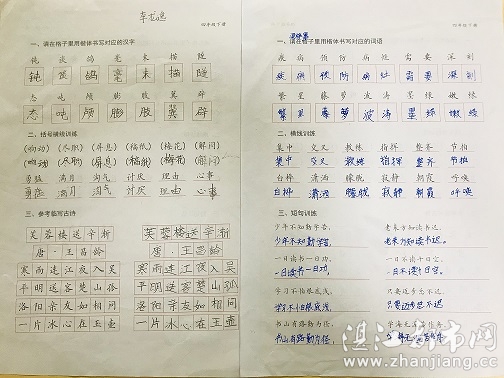 李龙逸
四年级下册
一、请在格子里用楷体书写对应的汉字
钝 谈 鸽 毫 末 描 隧
态 吨 倾 膨 肢 翼 辟
态 吨 颅 膨 肢 翼 辟
二、括号横线训练
(吻动) (尽职) (屏息) (稿纸) (梅花) (解闷)
勇猛 满月 淘气 讨厌 理由 心事
勇猛 满月 淘气 讨厌 理由 心事
三、参考临写古诗
芙蓉楼送辛渐 芙蓉楼送辛渐
唐·王昌龄 唐·王昌龄
寒雨连江夜入吴 寒雨连江夜入吴
平明送客楚山孤 平明送客楚山孤
洛阳亲友如相问 洛阳亲友如相问
一片冰心在玉壶 一片冰心在玉壶
四年级下册
一、请在格子里用楷体书写对应的词语
疾病 预防 病症 需要 深刻
疾病 预防 病症 需要 深刻
繁星 藤萝 波涛 墨绿 嫩绿
繁星 藤萝 波涛 墨绿 嫩绿
二、横线训练
集中 交叉 教练 指挥 整齐 节拍
集中 交叉 教练 指挥 整齐 节拍
白桦 潇洒 朦胧 寂静 朝霞 呼唤
白桦 潇洒 朦胧 寂静 朝霞 呼唤
三、短句训练
少年不知勤学苦, 老来方知读书迟。
少年不知勤学苦, 老来方知读书迟。
一日读书一日功, 一日不读十日空。
一日读书一日功, 一日不读十日空。
学习不怕根底浅, 只要迈步总不迟。
学习不怕根底浅, 只要迈步总不迟。
书山有路勤为径, 学海无涯苦作舟。
书山有路勤为径,
湛江新闻网
www.zhanjiang.cc